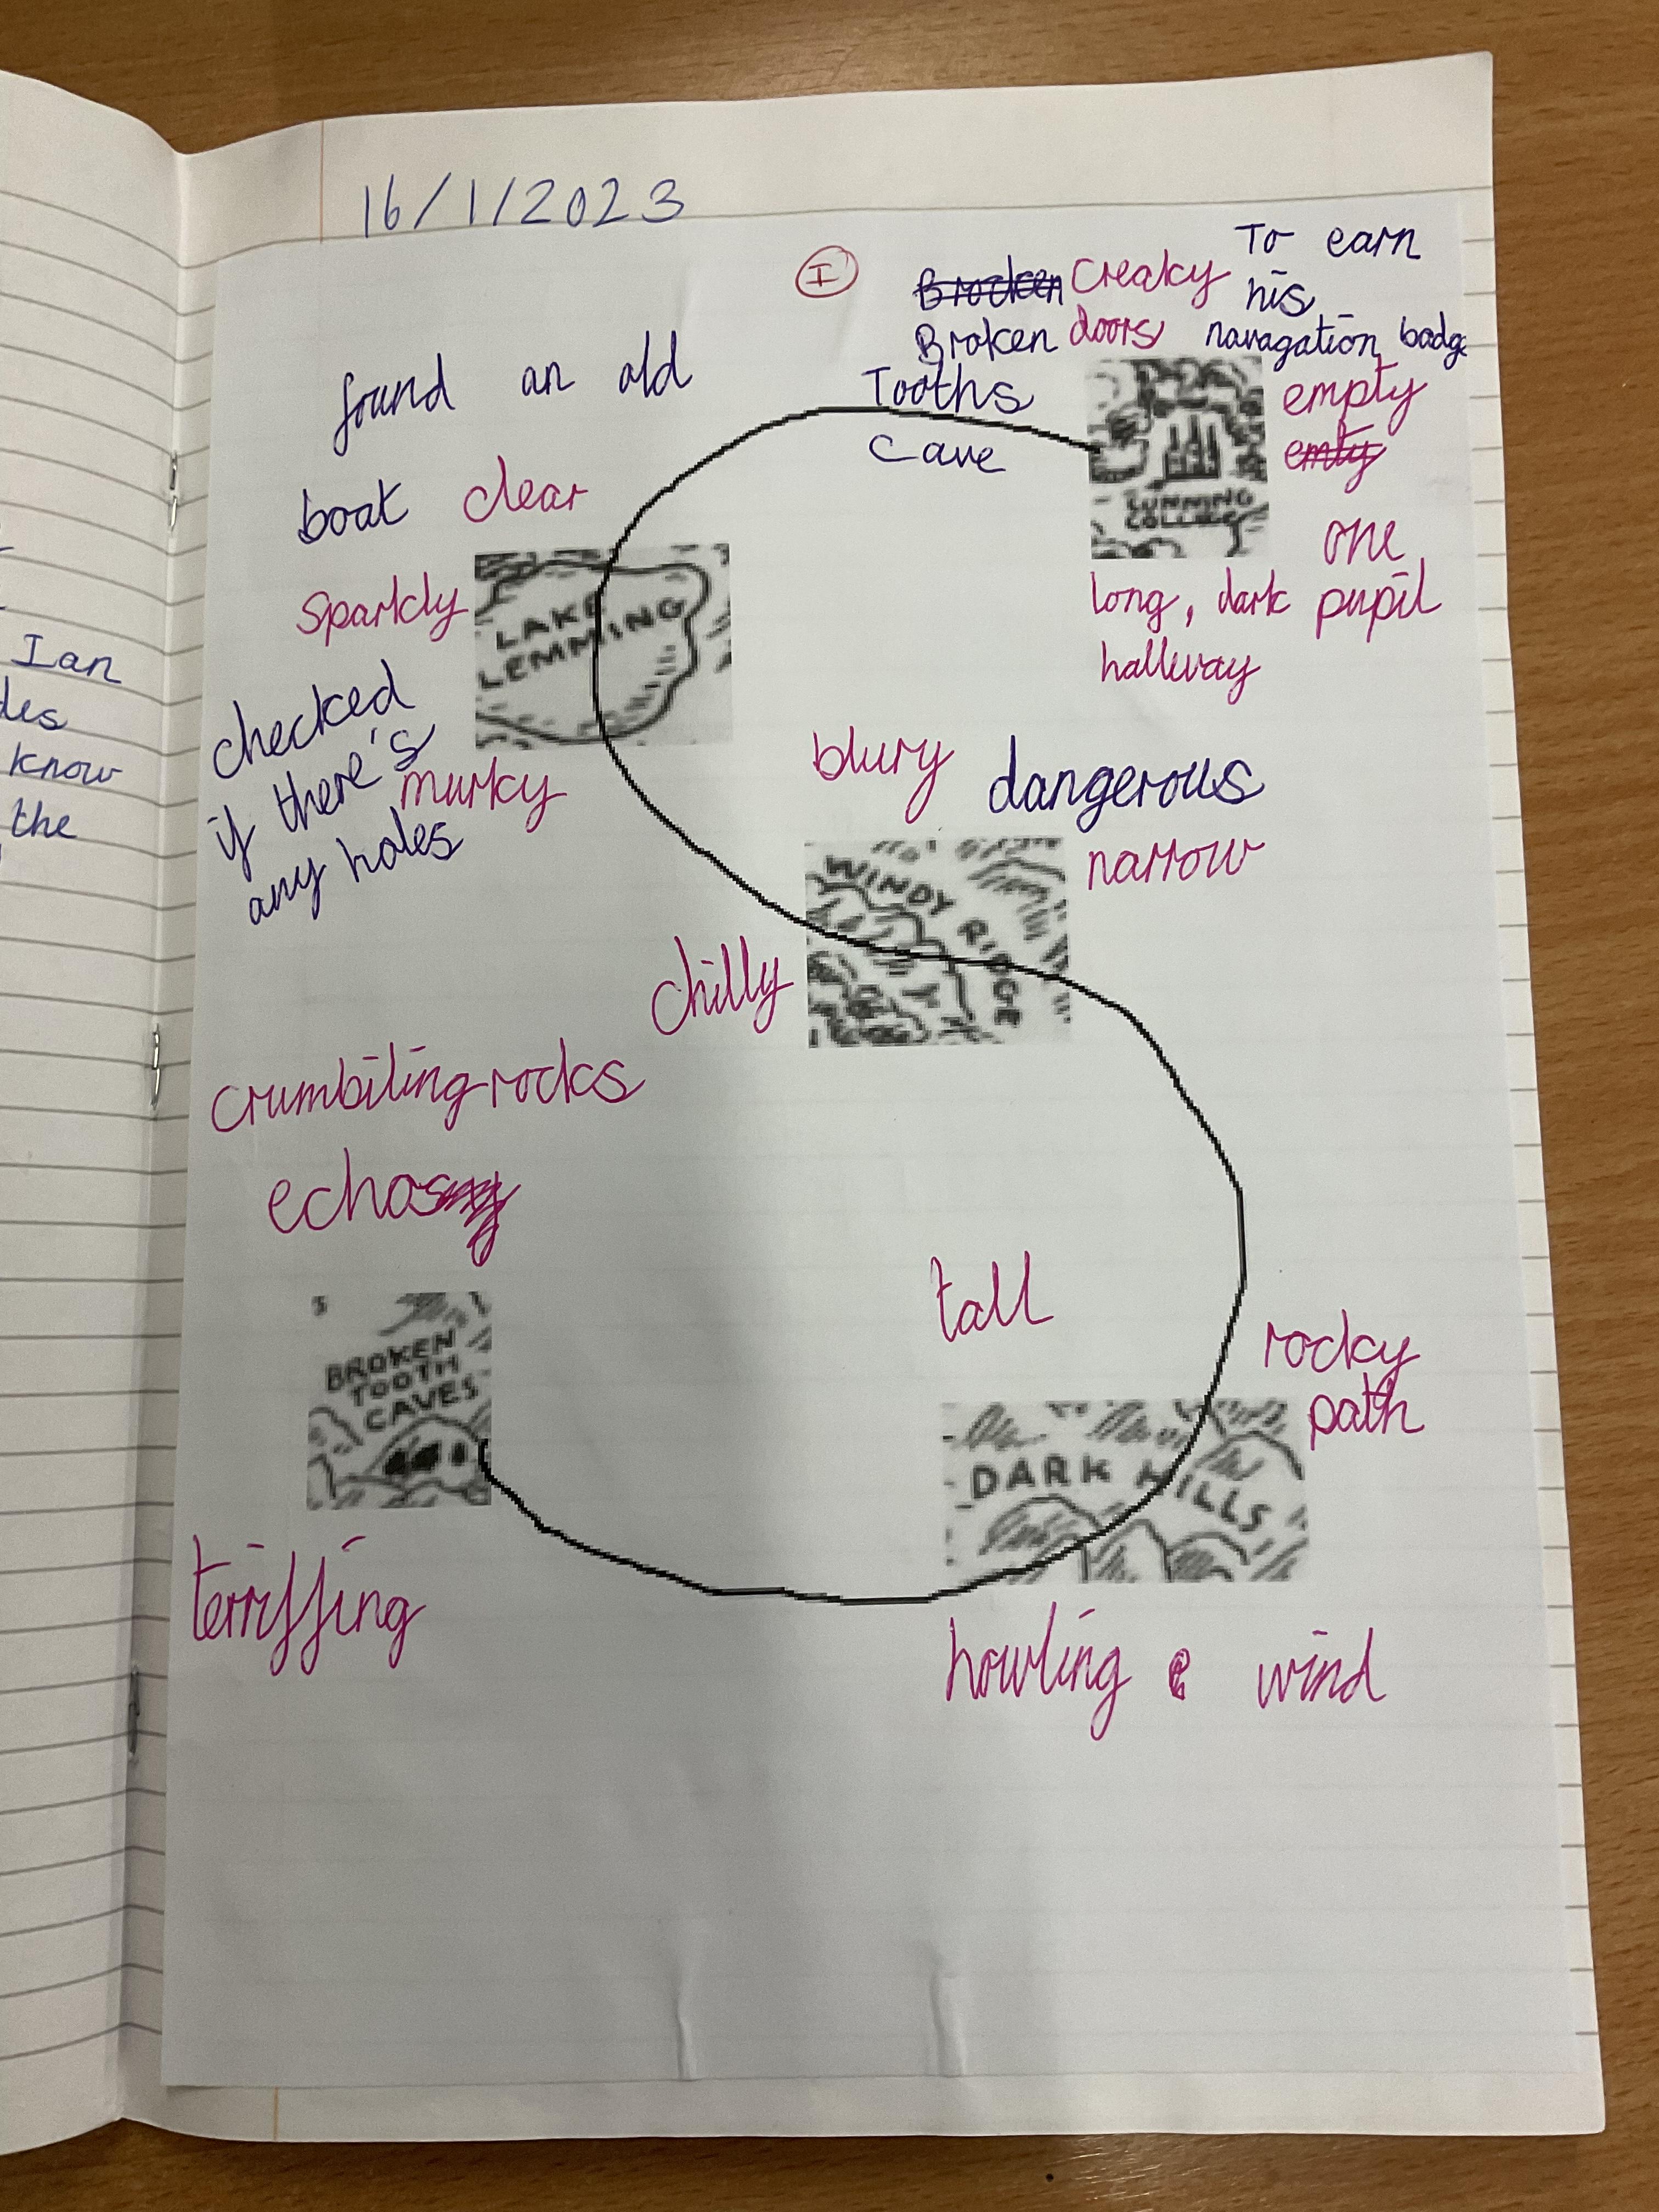 16/1/2023
I
Brocken Creaky
Broken doors
Tooths
Cave
To earn
his
navagation badge
empty
emty
one
pupil
long, dark
hallway
CUNNING
COLLEGE
found an old
boat clear
Sparkly
LAKE
LEMMING
checked
if there's
any holes
murky
blury dangerous
narrow
WINDY RIDGE
chilly
crumbiling rocks
echos
BROKEN
TOOTH
CAVES
terriffing
tall
rocky
path
DARK HILLS
howling wind
Ian
des
know
the